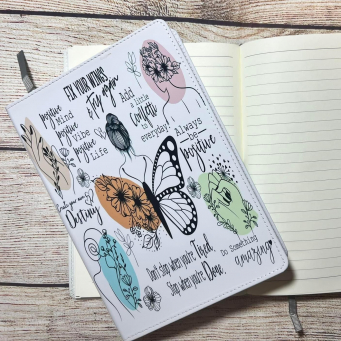 FIX YOUR WINGS
& Try again
Add
a little
Confetti
to
everyday
positive
Mind
positive
Vibe
positive
Life
Always
be
Positive
Create your own
Destiny
Don't stop when you're Tired,
Stop when you're Done,
Do Something
amazing